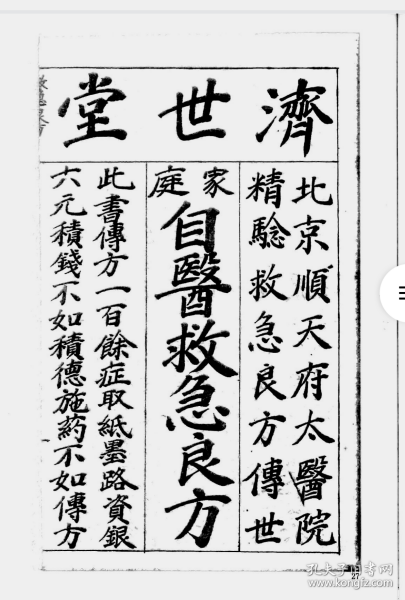 濟世堂
北京順天府太醫院
精驗救急良方傳世
家庭
自醫救急良方
此書傳方一百餘症取紙墨路資銀
六元積錢不如積德施葯不如傳方
27
孔夫子旧书网
www.kongfz.com